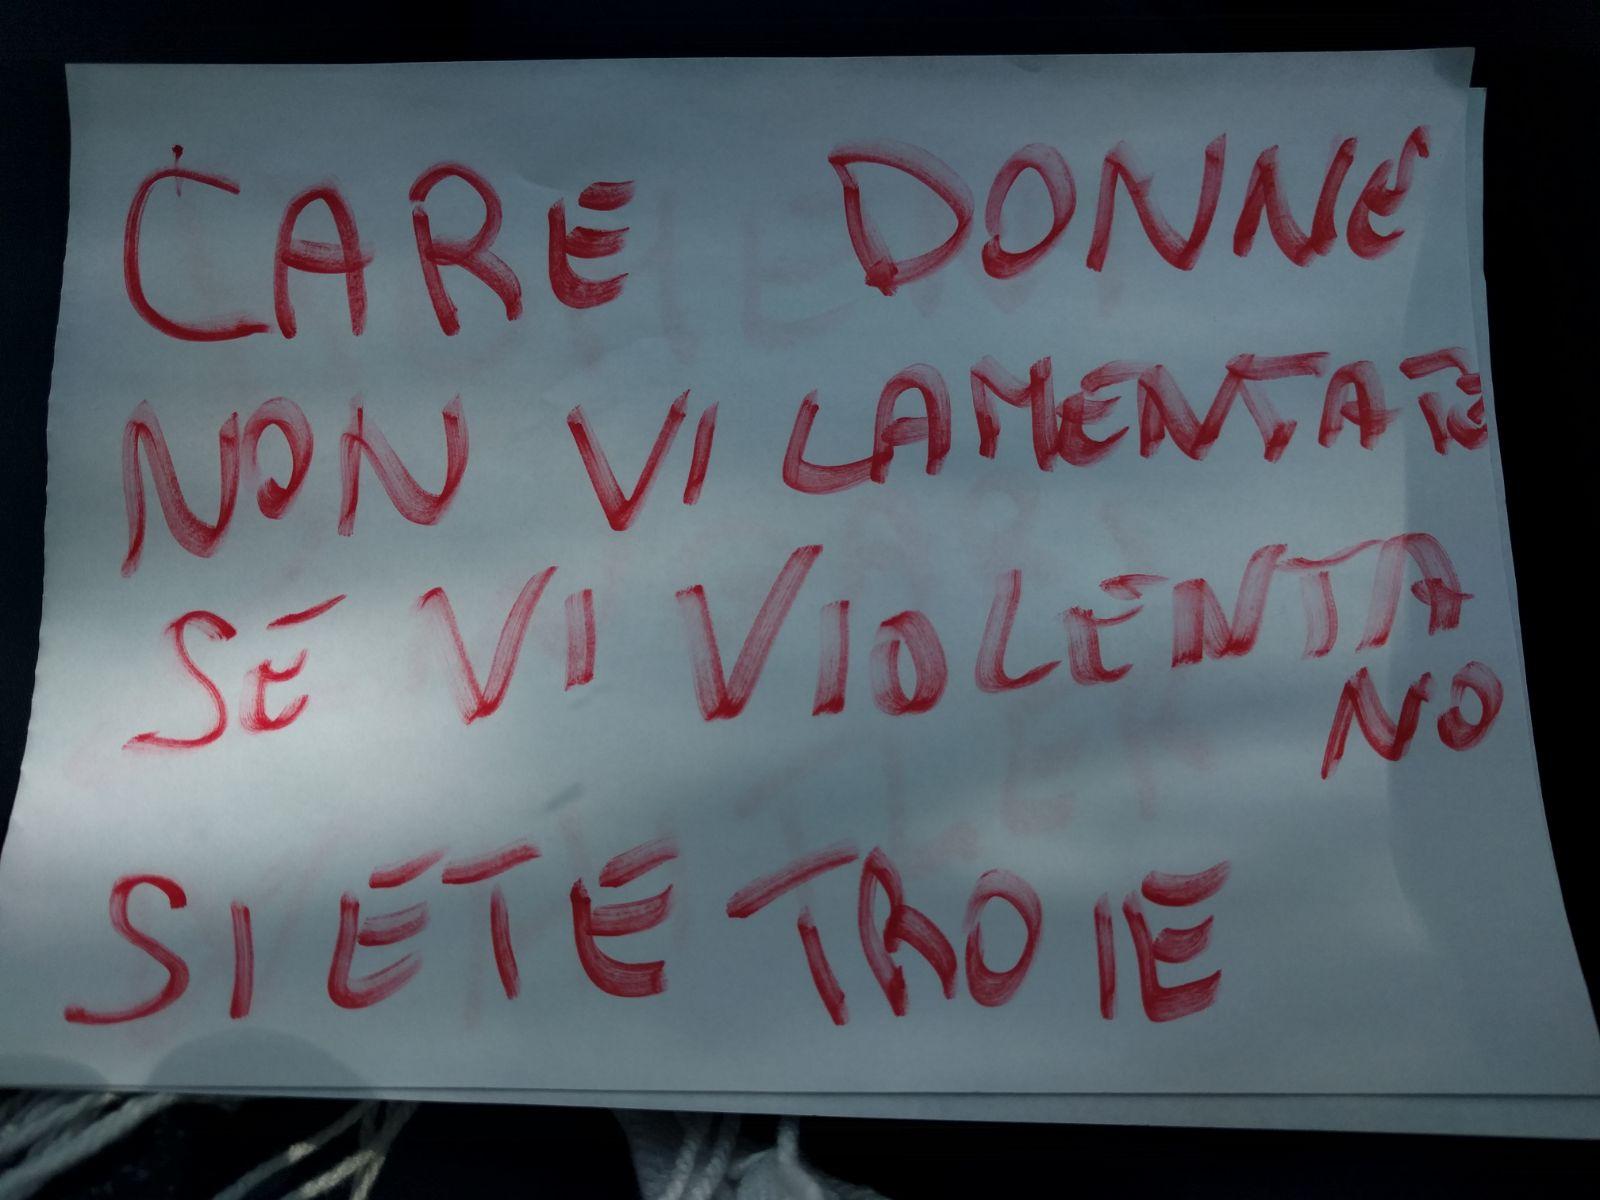 CARE DONNE
NON VI LAMENTATE
SE VI VIOLENTA
NO
SIETE TROIE